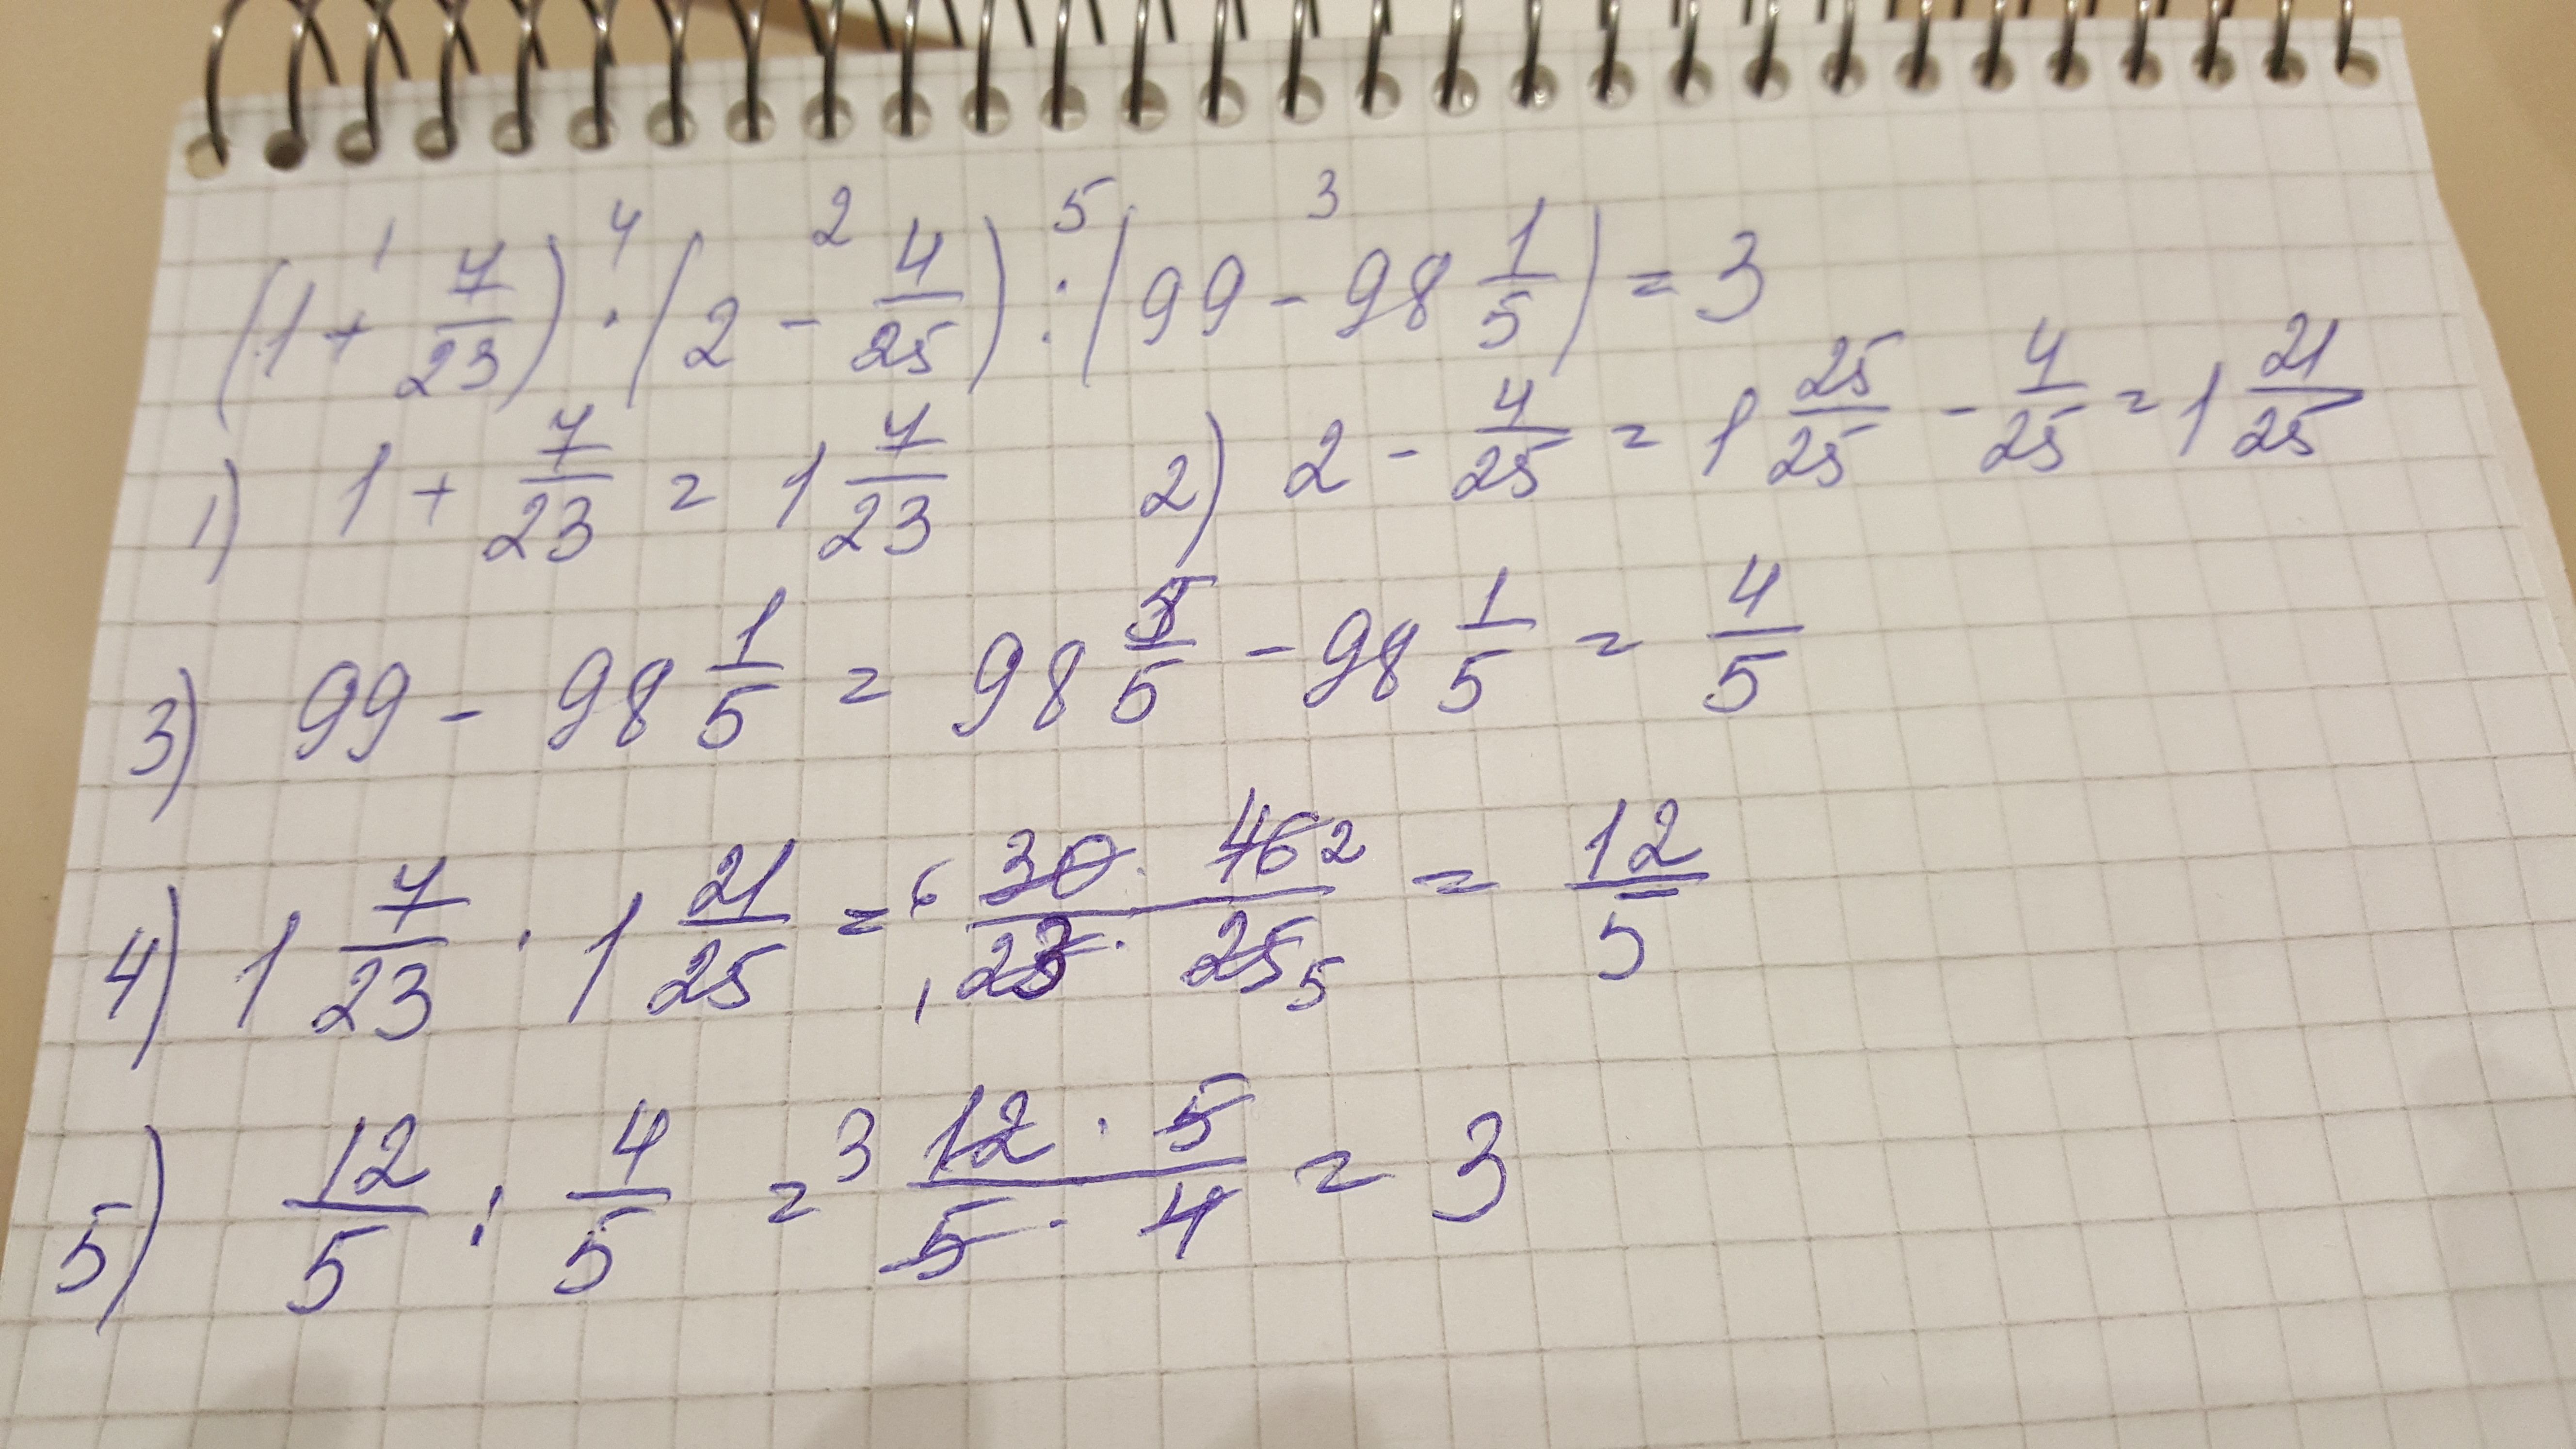 1 4 2 5 3
(1 + 7/23) · (2 - 4/25) : (99 - 98 1/5) = 3
1) 1 + 7/23 = 1 7/23 2) 2 - 4/25 = 1 25/25 - 4/25 = 1 21/25
3) 99 - 98 1/5 = 98 5/5 - 98 1/5 = 4/5
4) 1 7/23 · 1 21/25 = 6 30 · 46 2 / 1 23 · 25 5 = 12/5
5) 12/5 : 4/5 = 3 12 · 5 / 5 · 4 = 3